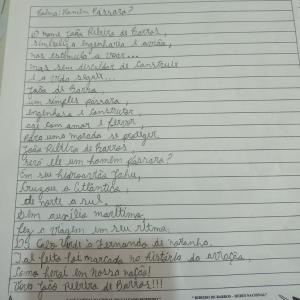 Homem Pássaro?
O nome João Ribeiro de Barros,
simboliza engenharia e avião,
nos estimula a voar...
mas sem descuidar de construir
e a vida seguir...
João de Barro,
um simples pássaro,
engenhoso e construtor
age com amor e fervor
para uma morada se proteger.
João Ribeiro de Barros,
Será ele um homem pássaro?
Em seu hidroavião Jahu,
Cruzou o Atlântico,
de norte a sul,
Sem auxílio marítimo,
Fez a viagem em seu ritmo.
De Cabo Verde a Fernando de noronha,
Tal feito foi marcado na história da aviação,
Como herói em nossa nação!
Viva João Ribeiro de Barros!!!
RIBEIRO DE BARROS - HERÓI NACIONAL